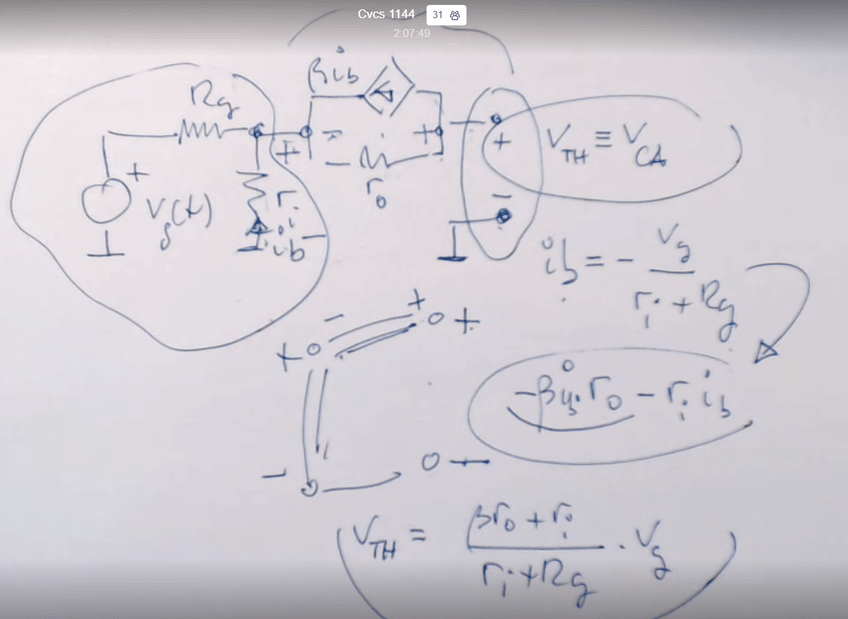 Cvcs 1144 31
2:07:49
βib
Rg
+ − +
+
Vg(t)
ri
ib −
ro
+
−
V_TH ≡ V_CA
ib = − Vg / (ri + Rg)
− +
+ +
−βib·ro − ri ib
− −
V_TH = (βro + ri) / (ri + Rg) · Vg